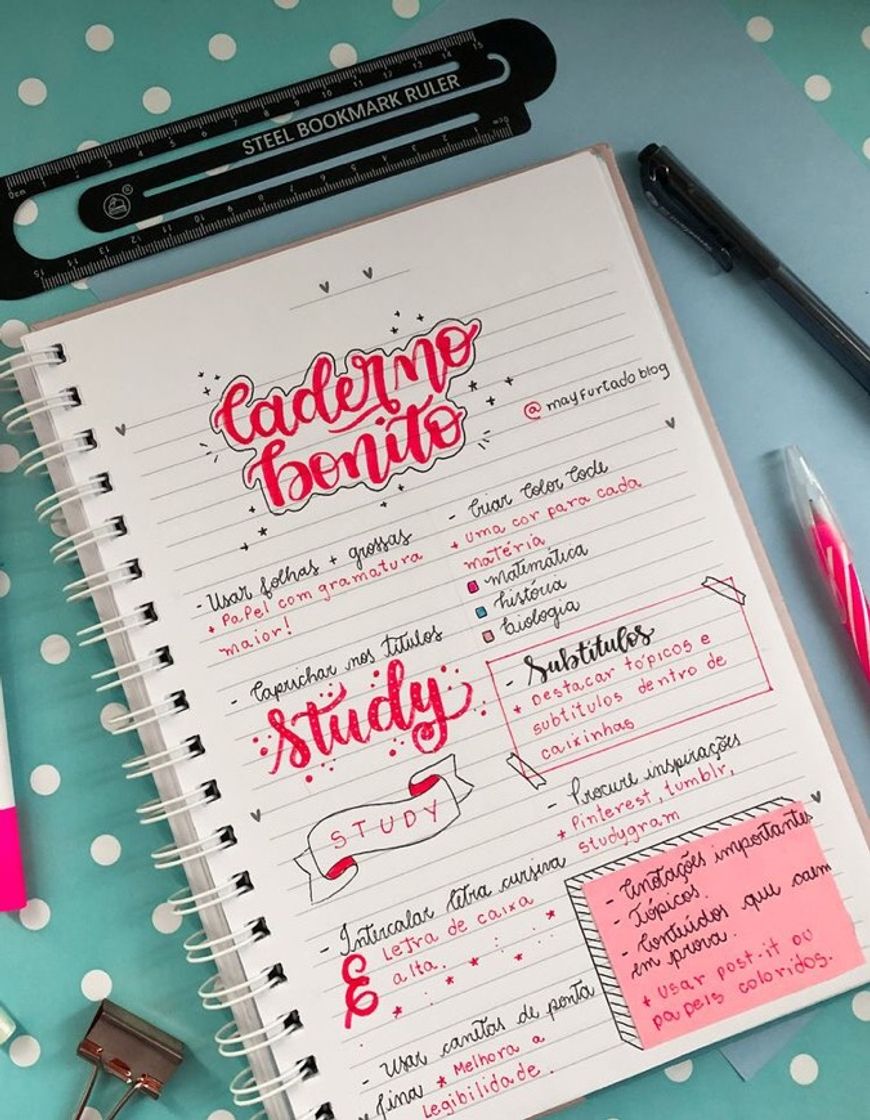 STEEL BOOKMARK RULER
Caderno
bonito
@mayfurtadoblog
- Usar folhas + grossas
+ Papel com gramatura
maior!
- Caprichar nos títulos
Study
STUDY
- Intercalar letra cursiva
E Letra de caixa
alta.
- Usar canetas de ponta
fina * Melhora a
Legibilidade.
- Criar Color Code
+ uma cor para cada
matéria
matemática
história
biologia
- Subtítulos
* Destacar tópicos e
subtítulos dentro de
caixinhas
- Procure inspirações
* Pinterest, tumblr,
studygram
- Anotações importantes
- Tópicos.
- Conteúdos que caem
em prova.
+ Usar post-it ou
papeis coloridos.